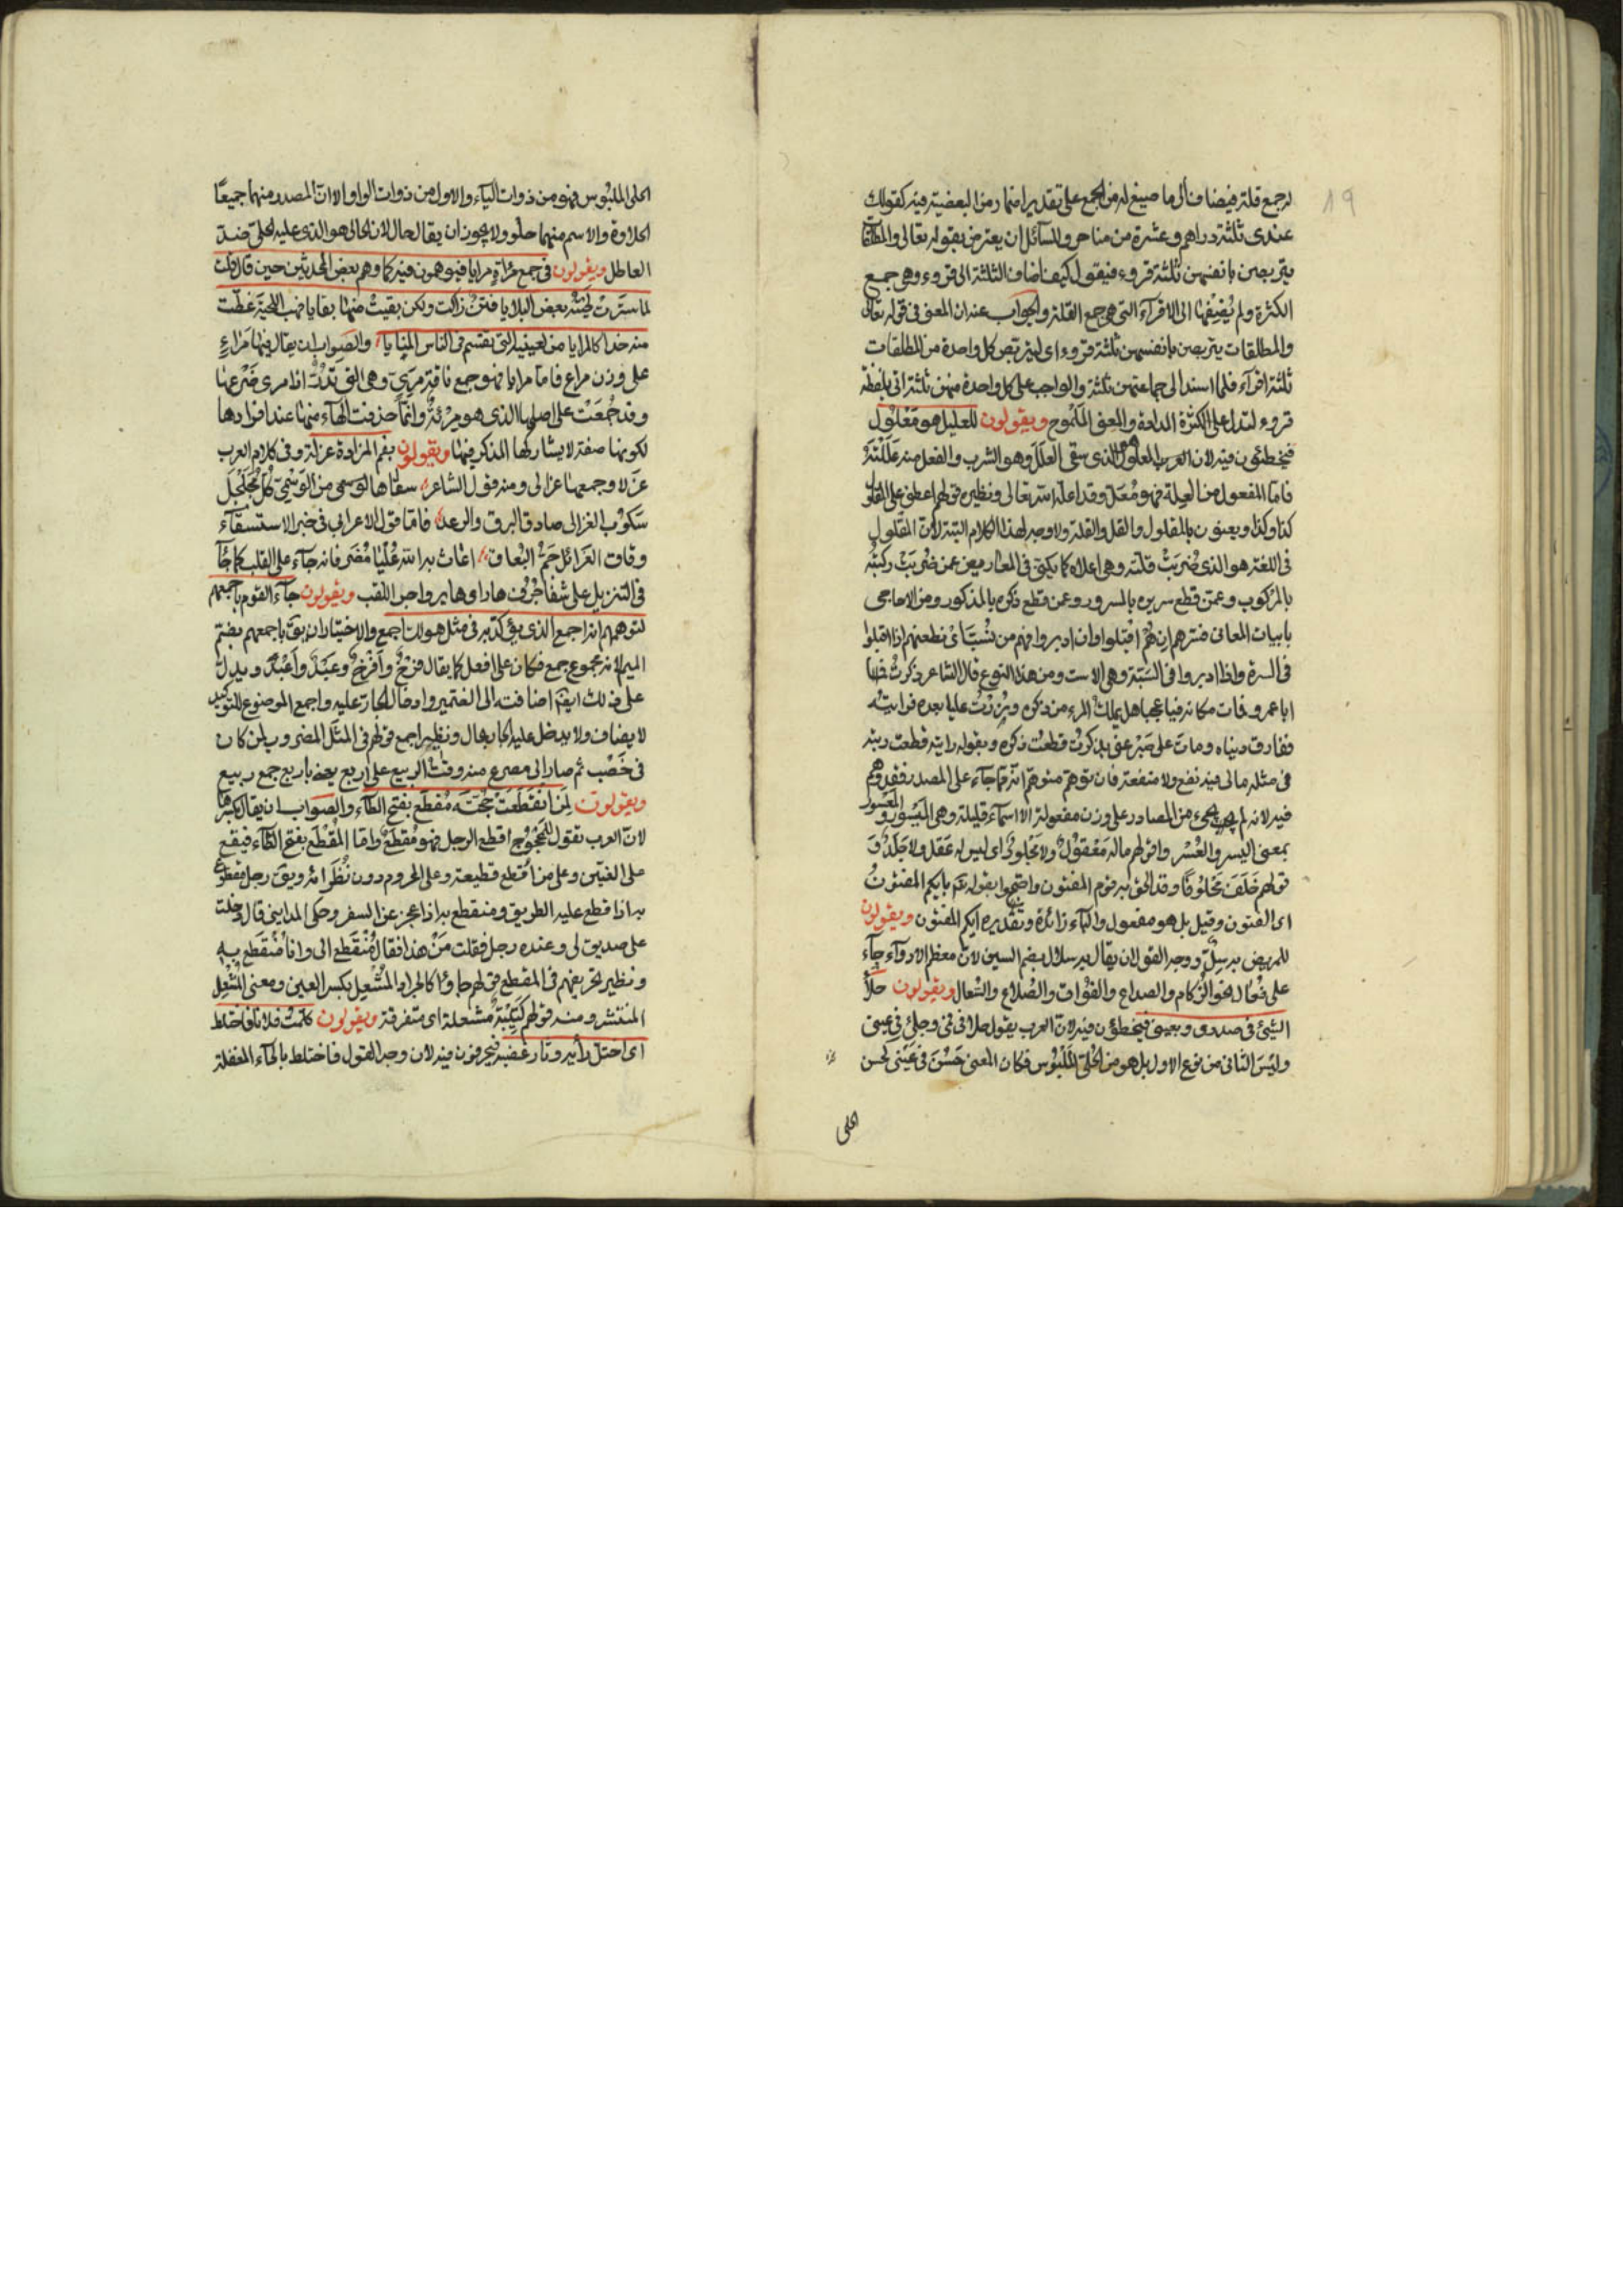 19
له جمع قلة فيضاف الى ما صيغ له من الجمع على تقدير اضمار من البعضية فيه كقولك
عندى ثلثة دراهم وعشرة من مناحر وللسآئل ان يعترض بقوله تعالى والمطلقات
يتربصن بانفسهن ثلثة قروء فيقول كيف اضاف الثلثة الى قروء وهى جمع
الكثرة ولم يُضِفْها الى الاقرآء التى هى جمع القلة والجواب عنه ان المعنى فى قوله تعالى
والمطلقات يتربصن بانفسهن ثلثة قروء اى ليتربص كل واحدة من المطلقات
ثلثة اقرآء فلما اسند الى جماعتهن ثلثة والواجب على كل واحدة منهن ثلثة اتى بلفظة
قروء لتدل على الكثرة المرادة والمعنى المَلْموح ويقولون للعليل هو مَعْلول
فيخطئون فيه لان العرب المعلول الذى سقى العَلَل وهو الشرب والفعل منه عَلَلْتَه
فامّا المفعول من العِلة فهو مُعَلّ وقد اعلّه الله تعالى ونظيره قولهم اعطنى على المقلول
كذا وكذا ويعنون بالمقلول القل والقلة ولا وجه لهذا الكلام البتة لانّ المقلول
فى اللغة هو الذى ضُرِبَتْ قلته وهى اعلاه كما يكنى فى المعاريض عمن ضُرِبَتْ ركبته
بالمركوب وعمن قطع سرره بالمسرور وعمن قطع ذكره بالمذكور ومن الاحاجى
بابيات المعانى نسرّهم إن هُمْ اقْبلوا وان ادبروا فهم من نَسُبّ اى نطعنهم اذا اقبلوا
فى السرة واذا ادبروا فى السَبّة وهى الاست ومن هذا النوع قال الشاعر ذكرت
ابا عمرو فمات مكانه فيا عجبا هل يملك المرء من ذكره وزُرْتُ عليا بعده فرايته
ففارق دنياه ومات على صَبْر عنى بذكرتُ قطعتُ ذكره وبقوله رايته قطعت ريته
فى مثله مالى فيه نفع ولا منفعة فان توهم متوهم انه مما جآء على المصدر فقد وهم
فيه لانه لم يجئ من المصادر على وزن مفعولة الا اسمآء قليلة وهى المَيْسُور والمَعْسُور
بمعنى اليسر والعُسْر وقولهم ماله مَعْقُولٌ ولا مَجْلودٌ اى ليس له عَقل ولا جَلَدٌ و
قولهم حَلَفَ مَحْلُوفًا وقد الحق به قوم المفتون واحتجوا بقوله تع بايكم المفتونُ
اى الفتون وقيل بل هو مفعول والبآء زائدة وتقديره ايكم المفتون ويقولون
للمريض به سِلٌّ ووجه القول ان يقال به سلال بضم السين لانّ معظم الادوآء جآء
على فُعال نحو الزُكام والصداع والفُوَاق والصُلاع والسُعال ويقولون حلاَ
الشيئ فى صدرى وبعينى فيخطؤن فيه لانّ العرب يقول حلا فى فمى وحَلِىَ فى عينى
وليْسَ الثانى من نوع الاول بل هو من الحُلىّ المَلْبُوس فكان المعنى حَسُنَ فى عَيْنى لحسن
الحلى
الحلى الملبوس فهو من ذوات اليآء والاول من ذوات الواو الا انّ المصدر منهما جميعًا
الحلاوة والاسم منهما حلو ولا يجوز ان يقال حال لان الحالى هو الذى عليه الحلىّ ضدّ
العاطل ويقولون فى جمع مرْآة مرايا فيوهمون فيه كما وهم بعض المحدثين حين قال قلت
لما ستَرَت لحيته بعض البلايا فتن زالت ولكن بقيت منها بقايا فهب اللحية غطّت
منه خدا كالمرايا من لعينيه التى يقتسم فى الناس المنايا والصواب ان يقال فيها مَرَاءٍ
على وزن مراعٍ فاما مرايا فهو جمع ناقة مرِىّ وهى التى تدرّ اذا مرى ضَرْعها
وقد جُمِعَتْ على اصلها الذى هو مريّة وانما حذفت الهآء منها عند افرادها
لكونها صفة لا يشاركها المذكر فيها ويقولون بفم المزادة عزلة وفى كلام العرب
عَزلا وجمعها عزالى ومنه قول الشاعر سقاها لوسمى من الوَسْمىّ كلُّ مُجَلْجَلٍ
سَكُوبُ العزالى صادق البرق والرعد فاما قول الاعرابى فى خبر الاستسقآء
وفاق العزائل جَمُّ البُعاق اغاث به الله عُلْيَا مُضَر فانه جآء على القلب كما جآء
فى التنزيل على شفا جُرُف هار اى هاير واجرى اللقب ويقولون جآء القوم باجمعهم
لتوهمهم انه اجمع الذى يؤكد به فى مثل هو لك اجمع والاختيار ان يق باجمعهم بضم
الميم لانه مجموع جمع فكان على افعل كما يقال فَرْخٌ وافْرُخٌ وعَبْدٌ واَعْبُدٌ ويدل
على ذلك ايضًا اضافته الى الضمير وادخال الجارّ عليه واجمع الموضوع للتوكيد
لا يضاف ولا يدخل عليه الجار بحال ونظير اجمع قولهم فى المثل المضروب لمن كان
فى خَصْب ثم صار الى مصرع منه وقت الربيع على اربع يعنى باربع جمع ربيع
ويقولون لِمَن انْقَطَعَتْ حُجَّتُه مُقطَع بفتح الطآء والصواب ان يقال بكسرها
لانّ العرب تقول للمَحْجُوج اقطع الرجل فهو مُقطِعٌ وامّا المقْطَع بفتح الطآء فيقع
على العنّين وعلى من اُقتطع قطيعة وعلى المحروم دون نُظَرائه ويق رجل مقطوع
به اذا قطع عليه الطريق ومنقطع به اذا عجز عن السفر وحكى المداينى قال دخلت
على صديق لى وعنده رجل فقلت مَنْ هذا فقال مُنْقَطِع الىّ وانا مُنْقَطَع به
ونظير تحريفهم فى المقطع قولهم جاؤا كالجراد المُشْعِل بكسر العين ومعنى المُشْعِل
المنتشر ومنه قولهم كَتِيبَةٌ مُشعلة اى متفرقة ويقولون كلمتُ فلانا فاختلط
اى اختلّ رأيه وثار غضبه فيحرفون فيه لان وجه القول فاختلط بالحآء المغفلة